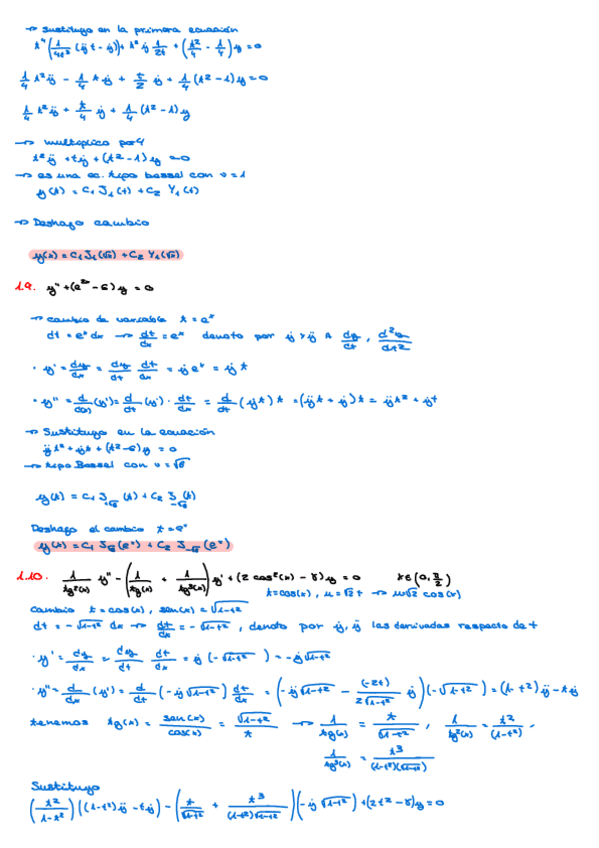 → Sustituyo en la primera ecuación
t⁴(1/4t³ (ÿt - ẏ)) + t² ẏ 1/2t + (t²/4 - 1/4)y = 0
1/4 t² ÿ - 1/4 t ẏ + t/2 ẏ + 1/4 (t² - 1)y = 0
1/4 t² ÿ + t/4 ẏ + 1/4 (t² - 1)y
→ multiplico por 4
t² ÿ + tẏ + (t² - 1)y = 0
→ es una ec. tipo bessel con ν = 1
y(t) = C₁ J₁(t) + C₂ Y₁(t)
→ Deshago cambio
y(x) = C₁ J₁(√x) + C₂ Y₁(√x)
1.9. y'' + (e²ˣ - 6) y = 0
→ cambio de variable t = eˣ
dt = eˣ dx → dt/dx = eˣ denoto por ẏ y ÿ a dy/dt, d²y/dt²
· y' = dy/dx = dy/dt dt/dx = ẏ eˣ = ẏ t
· y'' = d/dx (y') = d/dt (y') · dt/dx = d/dt (ẏt) t = (ÿt + ẏ) t = ÿt² + ẏt
→ Sustituyo en la ecuación
ÿt² + ẏt + (t² - 6)y = 0
→ tipo Bessel con ν = √6
y(t) = C₁ J_√6 (t) + C₂ J_-√6 (t)
Deshago el cambio t = eˣ
y(x) = C₁ J_√6 (eˣ) + C₂ J_-√6 (eˣ)
1.10. 1/tg²(x) y'' - (1/tg(x) + 1/tg³(x)) y' + (2 cos²(x) - 8) y = 0 x ∈ (0, π/2)
t = cos(x), u = √2 t → u √2 cos(x)
cambio t = cos(x), sen(x) = √1-t²
dt = -√1-t² dx → dt/dx = -√1-t², denoto por ẏ, ÿ las derivadas respecto de t
· y' = dy/dx = dy/dt dt/dx = ẏ (-√1-t²) = -ẏ√1-t²
· y'' = d/dx (y') = d/dt (-ẏ√1-t²) dt/dx = (-ÿ√1-t² - (-2t)/2√1-t² ẏ)(-√1-t²) = (1-t²)ÿ - tẏ
tenemos tg(x) = sen(x)/cos(x) = √1-t²/t → 1/tg(x) = t/√1-t², 1/tg²(x) = t²/(1-t²),
1/tg³(x) = t³/(1-t²)(√1-t²)
Sustituyo
(t²/1-t²)((1-t²)ÿ - tẏ) - (t/√1-t² + t³/(1-t²)√1-t²)(-ẏ√1-t²) + (2t² - 8)y = 0